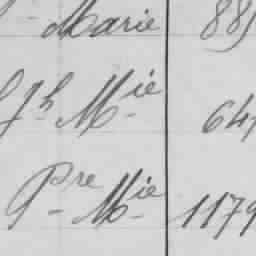 Marie 885
Jh Mie 641
Pre Mie 1179